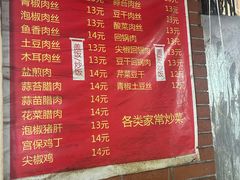 青椒肉丝 13元
泡椒肉丝 13元
鱼香肉丝 13元
土豆肉丝 13元
木耳肉丝 13元
盐煎肉 14元
蒜苔腊肉 14元
蒜苗腊肉 14元
花菜腊肉 14元
泡椒猪肝 14元
宫保鸡丁 14元
尖椒鸡 14元
盖饭/炒饭
蒜苔肉丝 13元
豆干肉丝 13元
酸菜肉丝 13元
回锅肉 13元
尖椒回锅肉
豆干回锅肉
芹菜豆干 12元
青椒土豆丝
盖饭/炒饭
各类家常炒菜